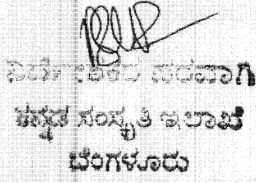 ನಿರ್ದೇಶಕರ ಪರವಾಗಿ
ಕನ್ನಡ ಸಂಸ್ಕೃತಿ ಇಲಾಖೆ
ಬೆಂಗಳೂರು